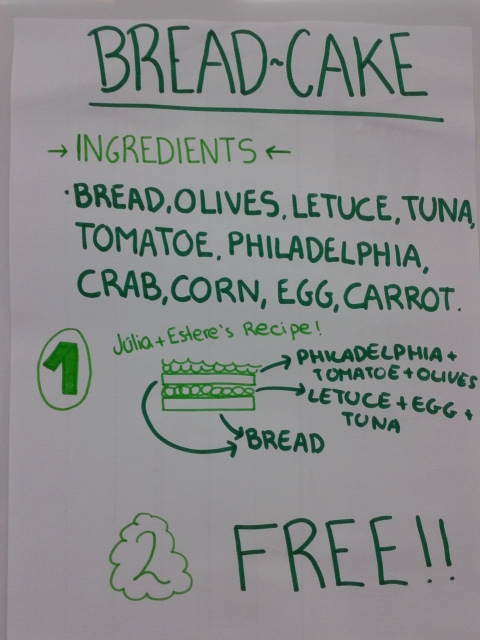 BREAD~CAKE
→ INGREDIENTS ←
·BREAD, OLIVES, LETUCE, TUNA,
TOMATOE, PHILADELPHIA,
CRAB, CORN, EGG, CARROT.
Júlia + Estere's Recipe!
1
PHILADELPHIA +
TOMATOE + OLIVES
LETUCE + EGG +
TUNA
BREAD
2
FREE!!